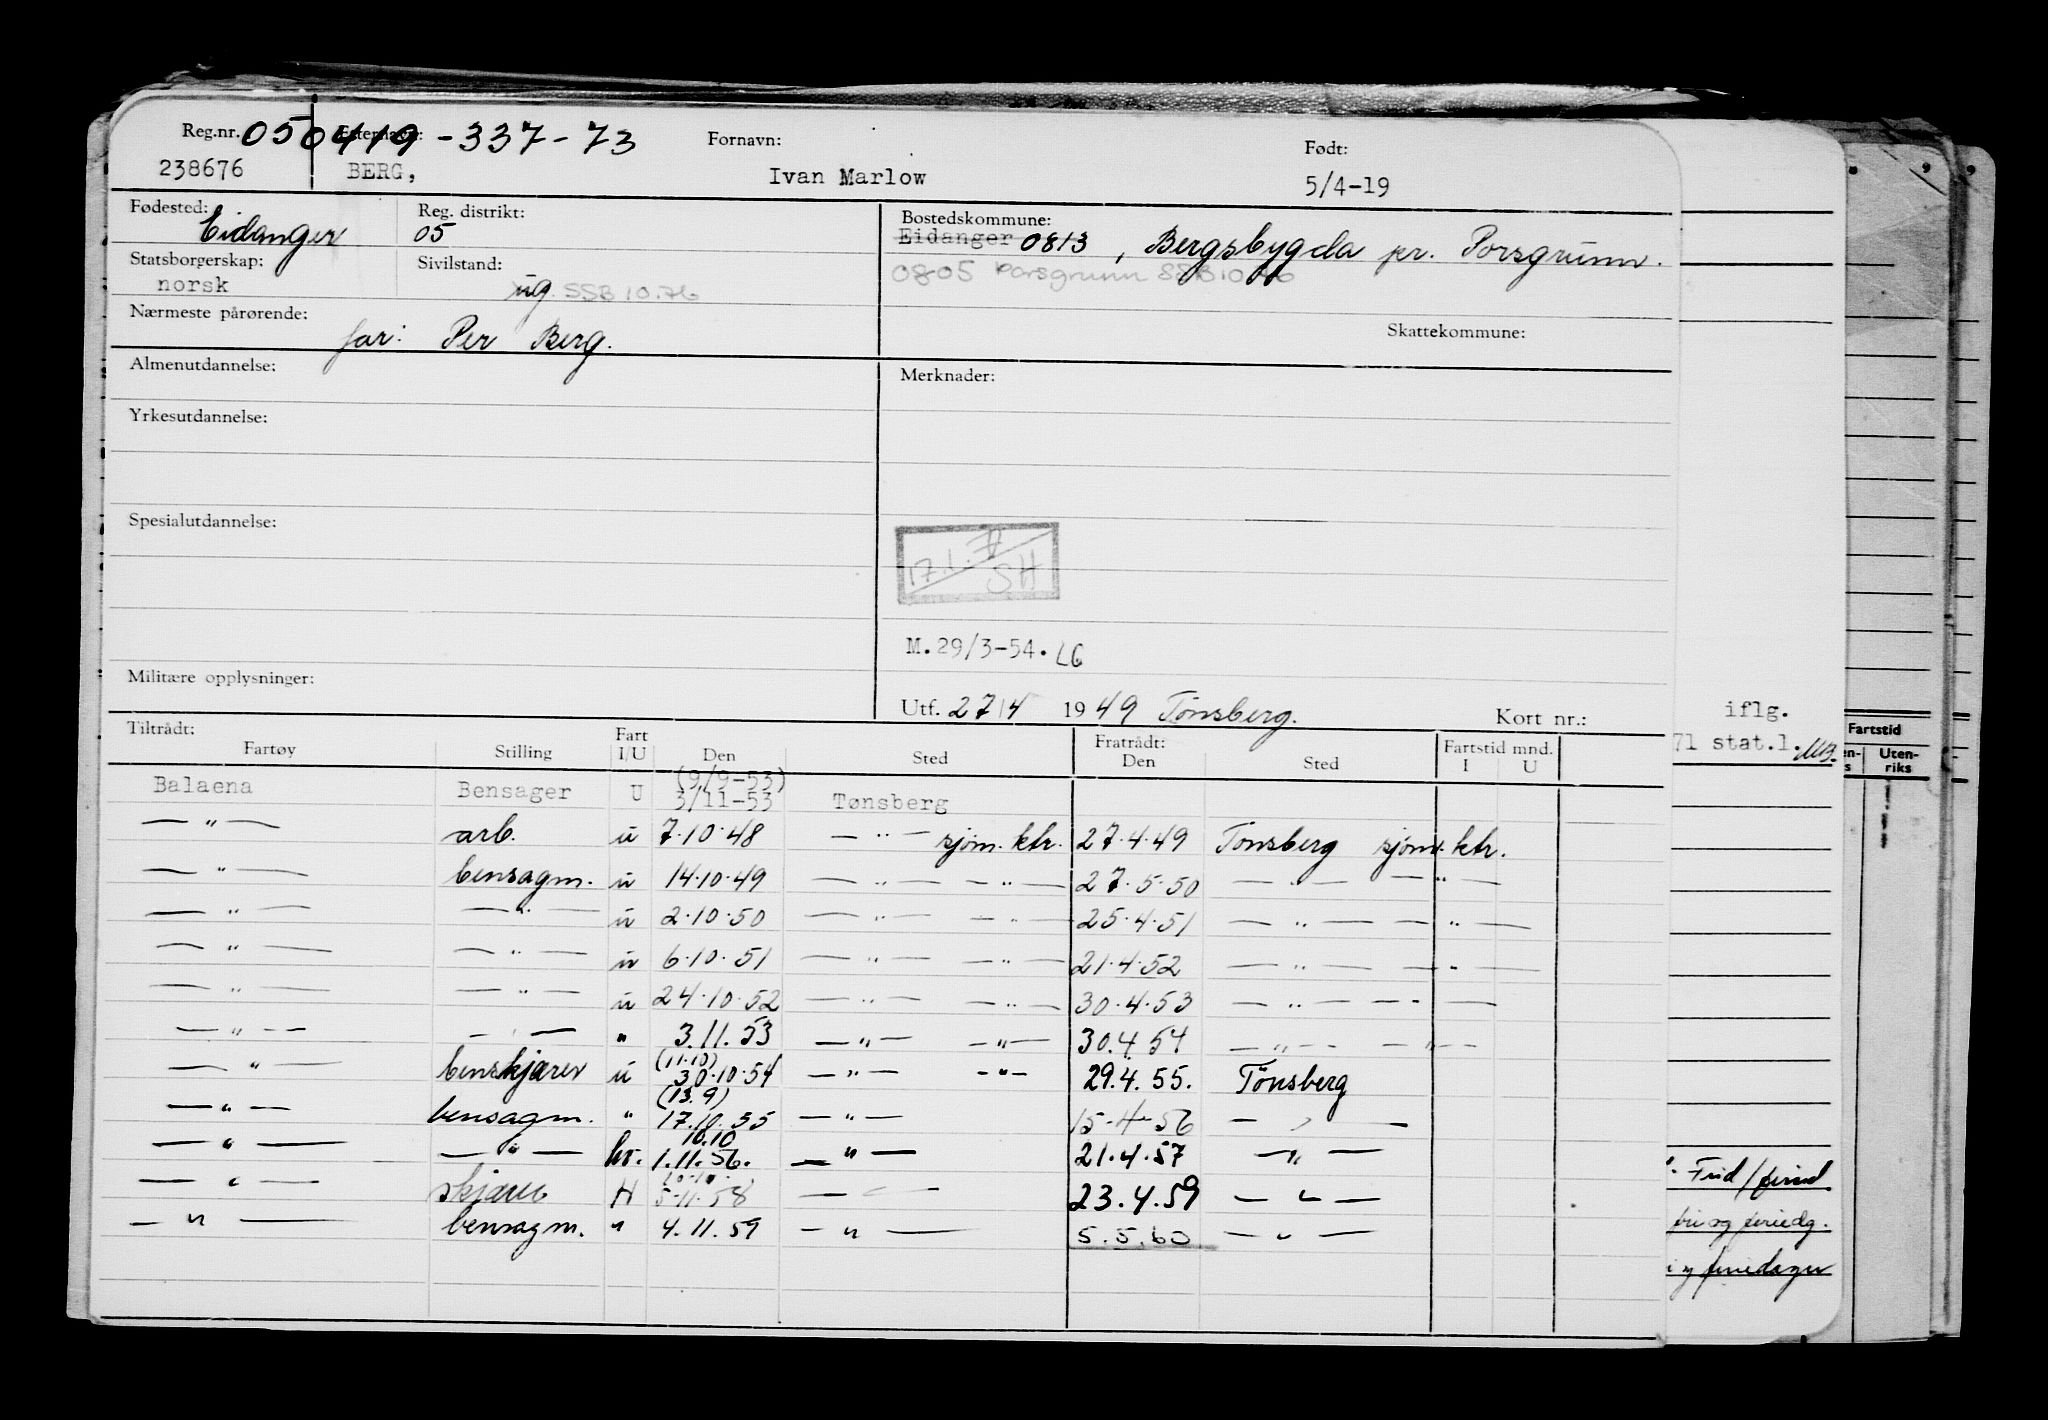 Reg.nr. Etternavn: Fornavn: Født:
050419-337-73
238676 BERG, Ivan Marlow 5/4-19
Fødested: Reg. distrikt: Bostedskommune:
Eidanger 05 Eidanger 0813, Bergsbygda pr. Porsgrunn.
Statsborgerskap: Sivilstand: 0805 Porsgrunn SSB 10.76
norsk ug. SSB 10.76
Nærmeste pårørende: Skattekommune:
far: Per Berg.
Almenutdannelse: Merknader:
Yrkesutdannelse:
Spesialutdannelse:
17.1. SH
M.29/3-54. LG
Militære opplysninger:
Utf. 27/4 1949 Tønsberg. Kort nr.: iflg.
71 stat.l. MB.
Tiltrådt: Fart Fratrådt: Fartstid mnd. Fartstid
Fartøy Stilling I/U Den Sted Den Sted I U Uten-
riks
(9/9-53)
Balaena Bensager U 3/11-53 Tønsberg
— " — arb. u 7.10.48 — " — sjøm. ktr. 27.4.49 Tønsberg sjøm. ktr.
— " — bensagm. u 14.10.49 — " — — " — 27.5.50 — " — — " —
— " — — " — u 2.10.50 — " — — " — 25.4.51 — " — — " —
— " — — " — u 6.10.51 — " — — " — 21.4.52 — " — — " —
— " — — " — u 24.10.52 — " — — " — 30.4.53 — " — — " —
— " — — " — " 3.11.53 — " — — " — 30.4.54 — " — — " —
(11.10)
— " — benskjærer u 30.10.54 — " — — " — 29.4.55. Tønsberg
(13.9)
— " — bensagm. " 17.10.55 — " — 15-4-56 — " —
10.10
— " — — " — hv. 1.11.56. — " — 21.4.57 — " —
— " — skjærer H 5-11-58 — " — 23.4.59 — " —
— " — bensagm. " 4.11.59 — " — 5.5.60 — " —
Frid/feried
fri og feriedg.
feriedager